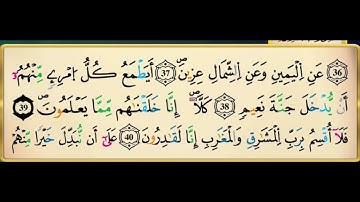 36 عَنِ الْيَمِينِ وَعَنِ الشِّمَالِ عِزِينَ 37 أَيَطْمَعُ كُلُّ امْرِئٍ مِّنْهُمْ
أَن يُدْخَلَ جَنَّةَ نَعِيمٍ 38 كَلَّا إِنَّا خَلَقْنَاهُم مِّمَّا يَعْلَمُونَ 39
فَلَا أُقْسِمُ بِرَبِّ الْمَشَارِقِ وَالْمَغَارِبِ إِنَّا لَقَادِرُونَ 40 عَلَىٰ أَن نُّبَدِّلَ خَيْرًا مِّنْهُمْ